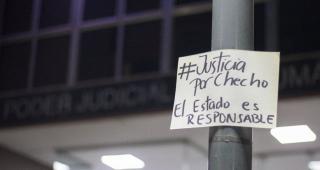 PODER JUDICIAL
#Justicia
Por Checho
El Estado es
RESPONSABLE